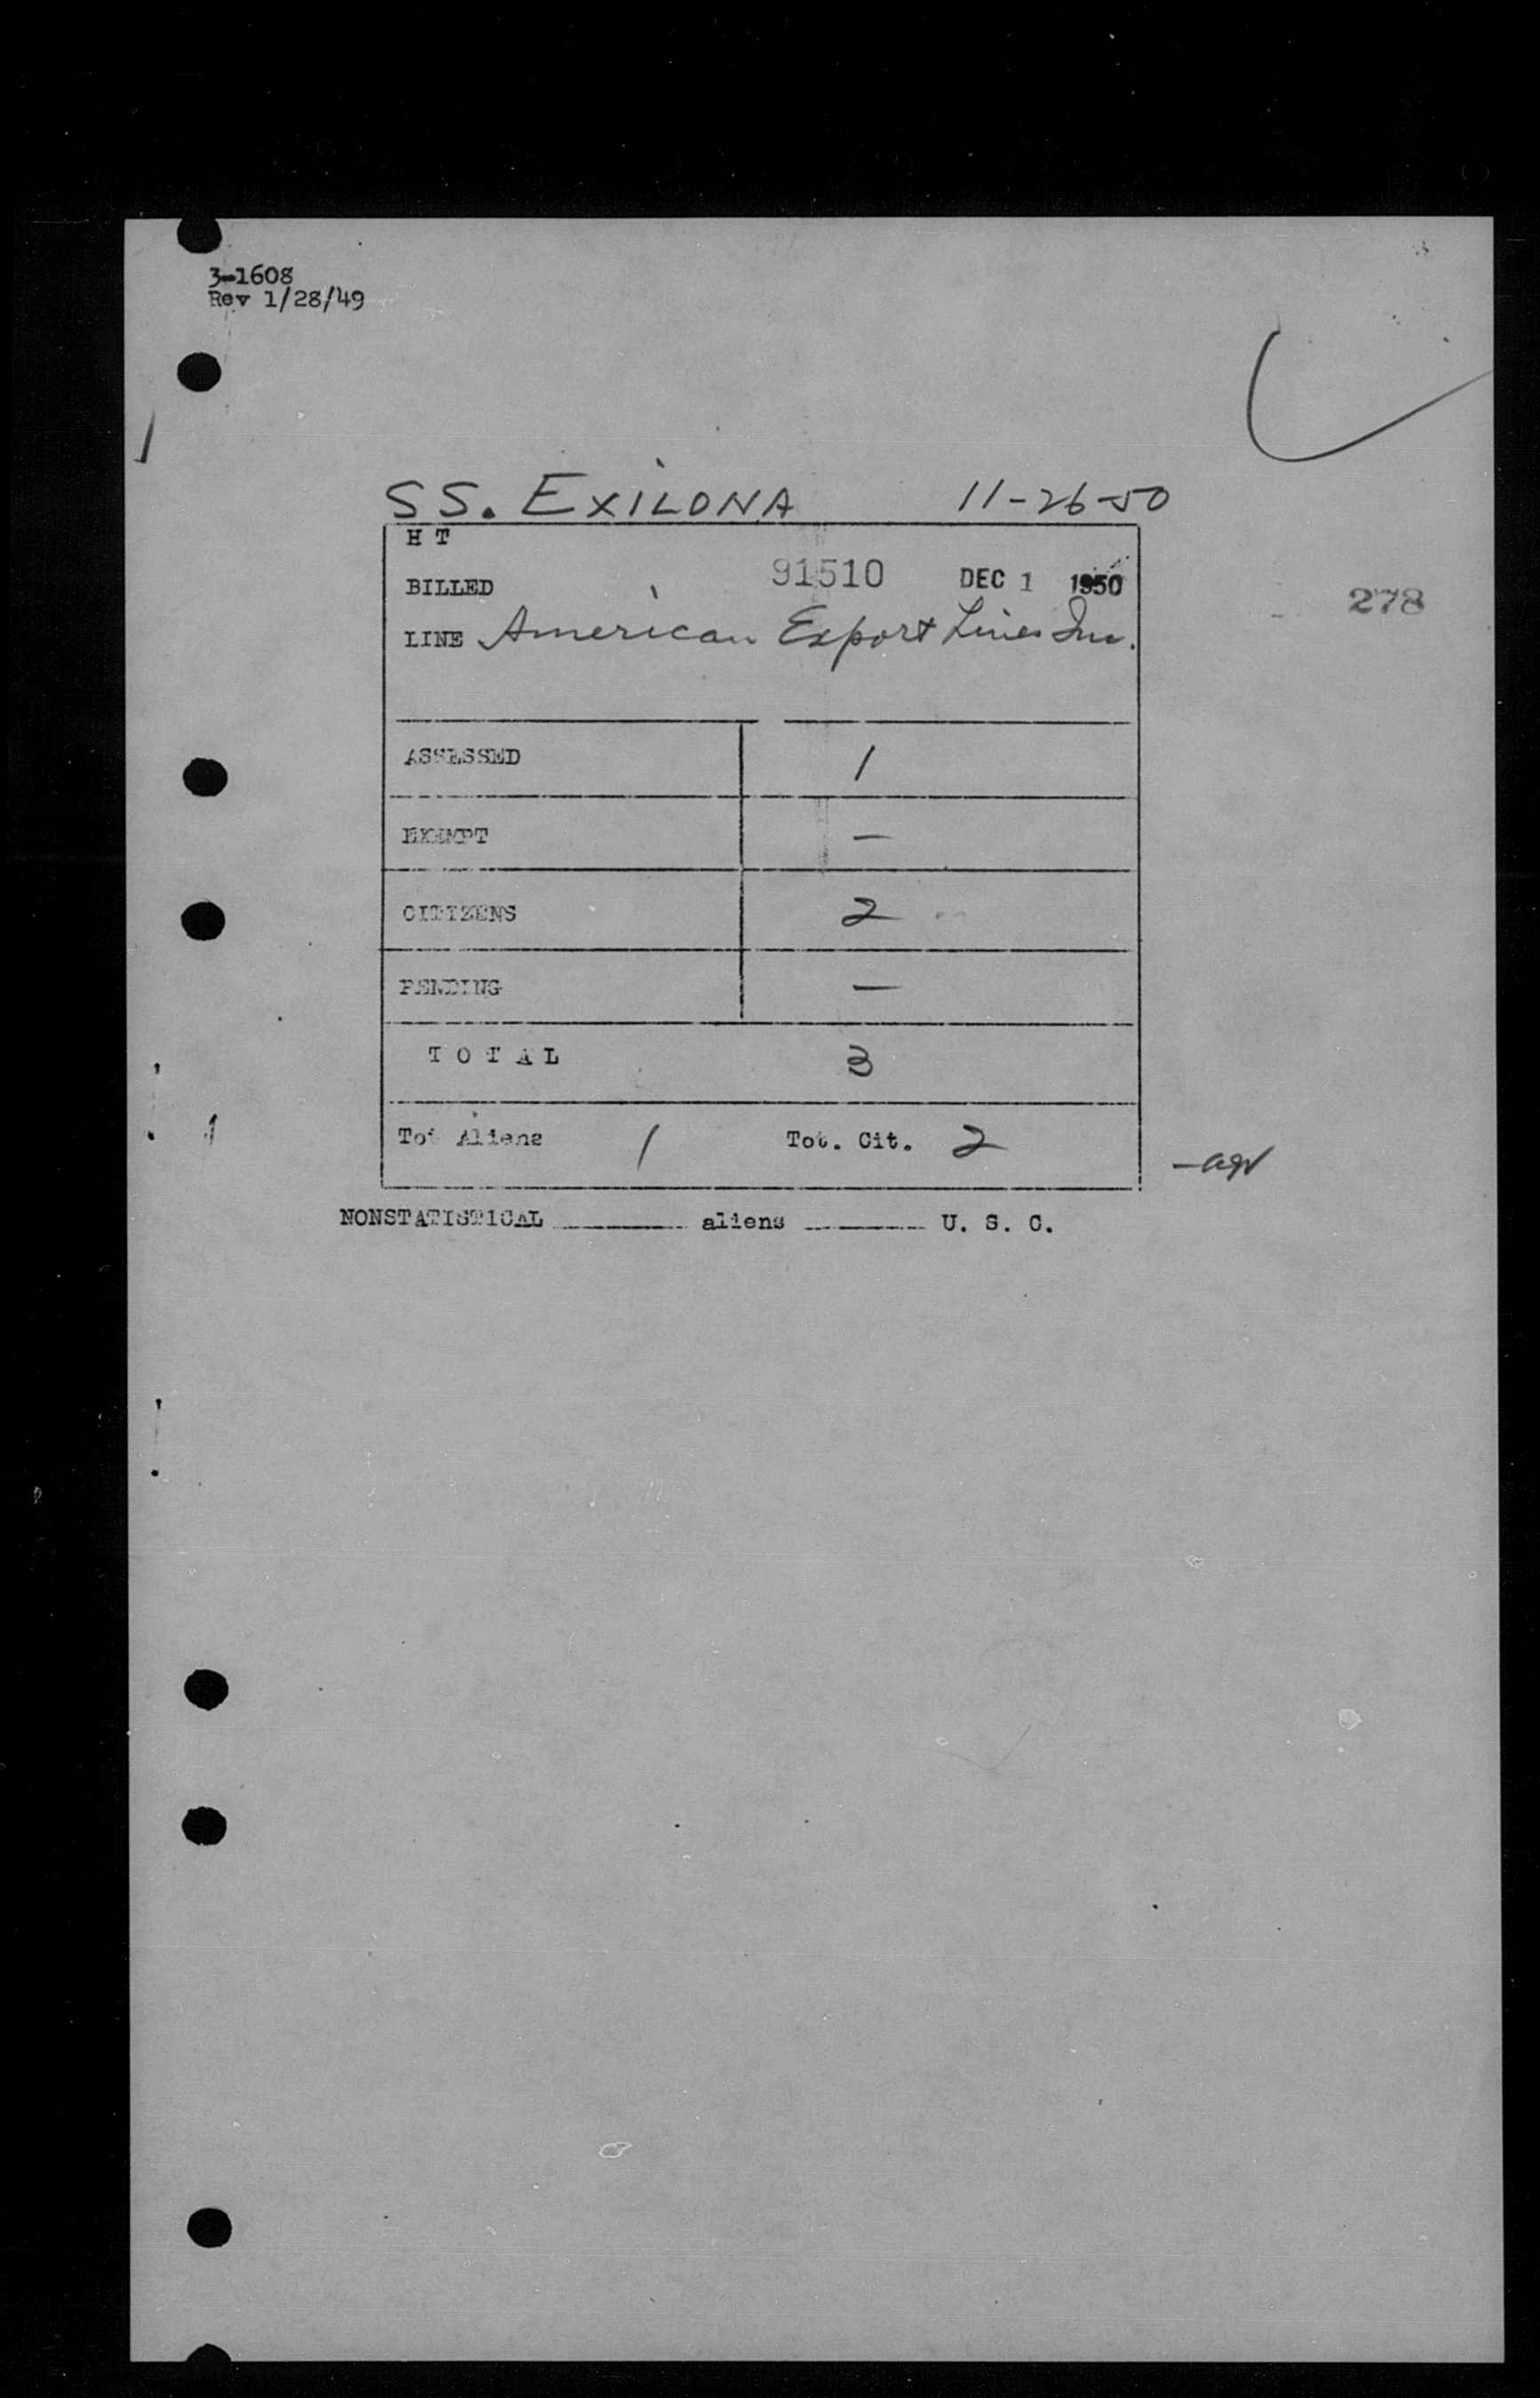 3-1608
Rev 1/28/49
SS. EXILONA 11-26-50
H T
BILLED 91510 DEC 1 1950
278
LINE American Export Lines Inc.
ASSESSED 1
EXEMPT —
CITIZENS 2
PENDING —
T O T A L 3
Tot Aliens 1 Tot. Cit. 2
NONSTATISTICAL ______ aliens ______ U. S. C.